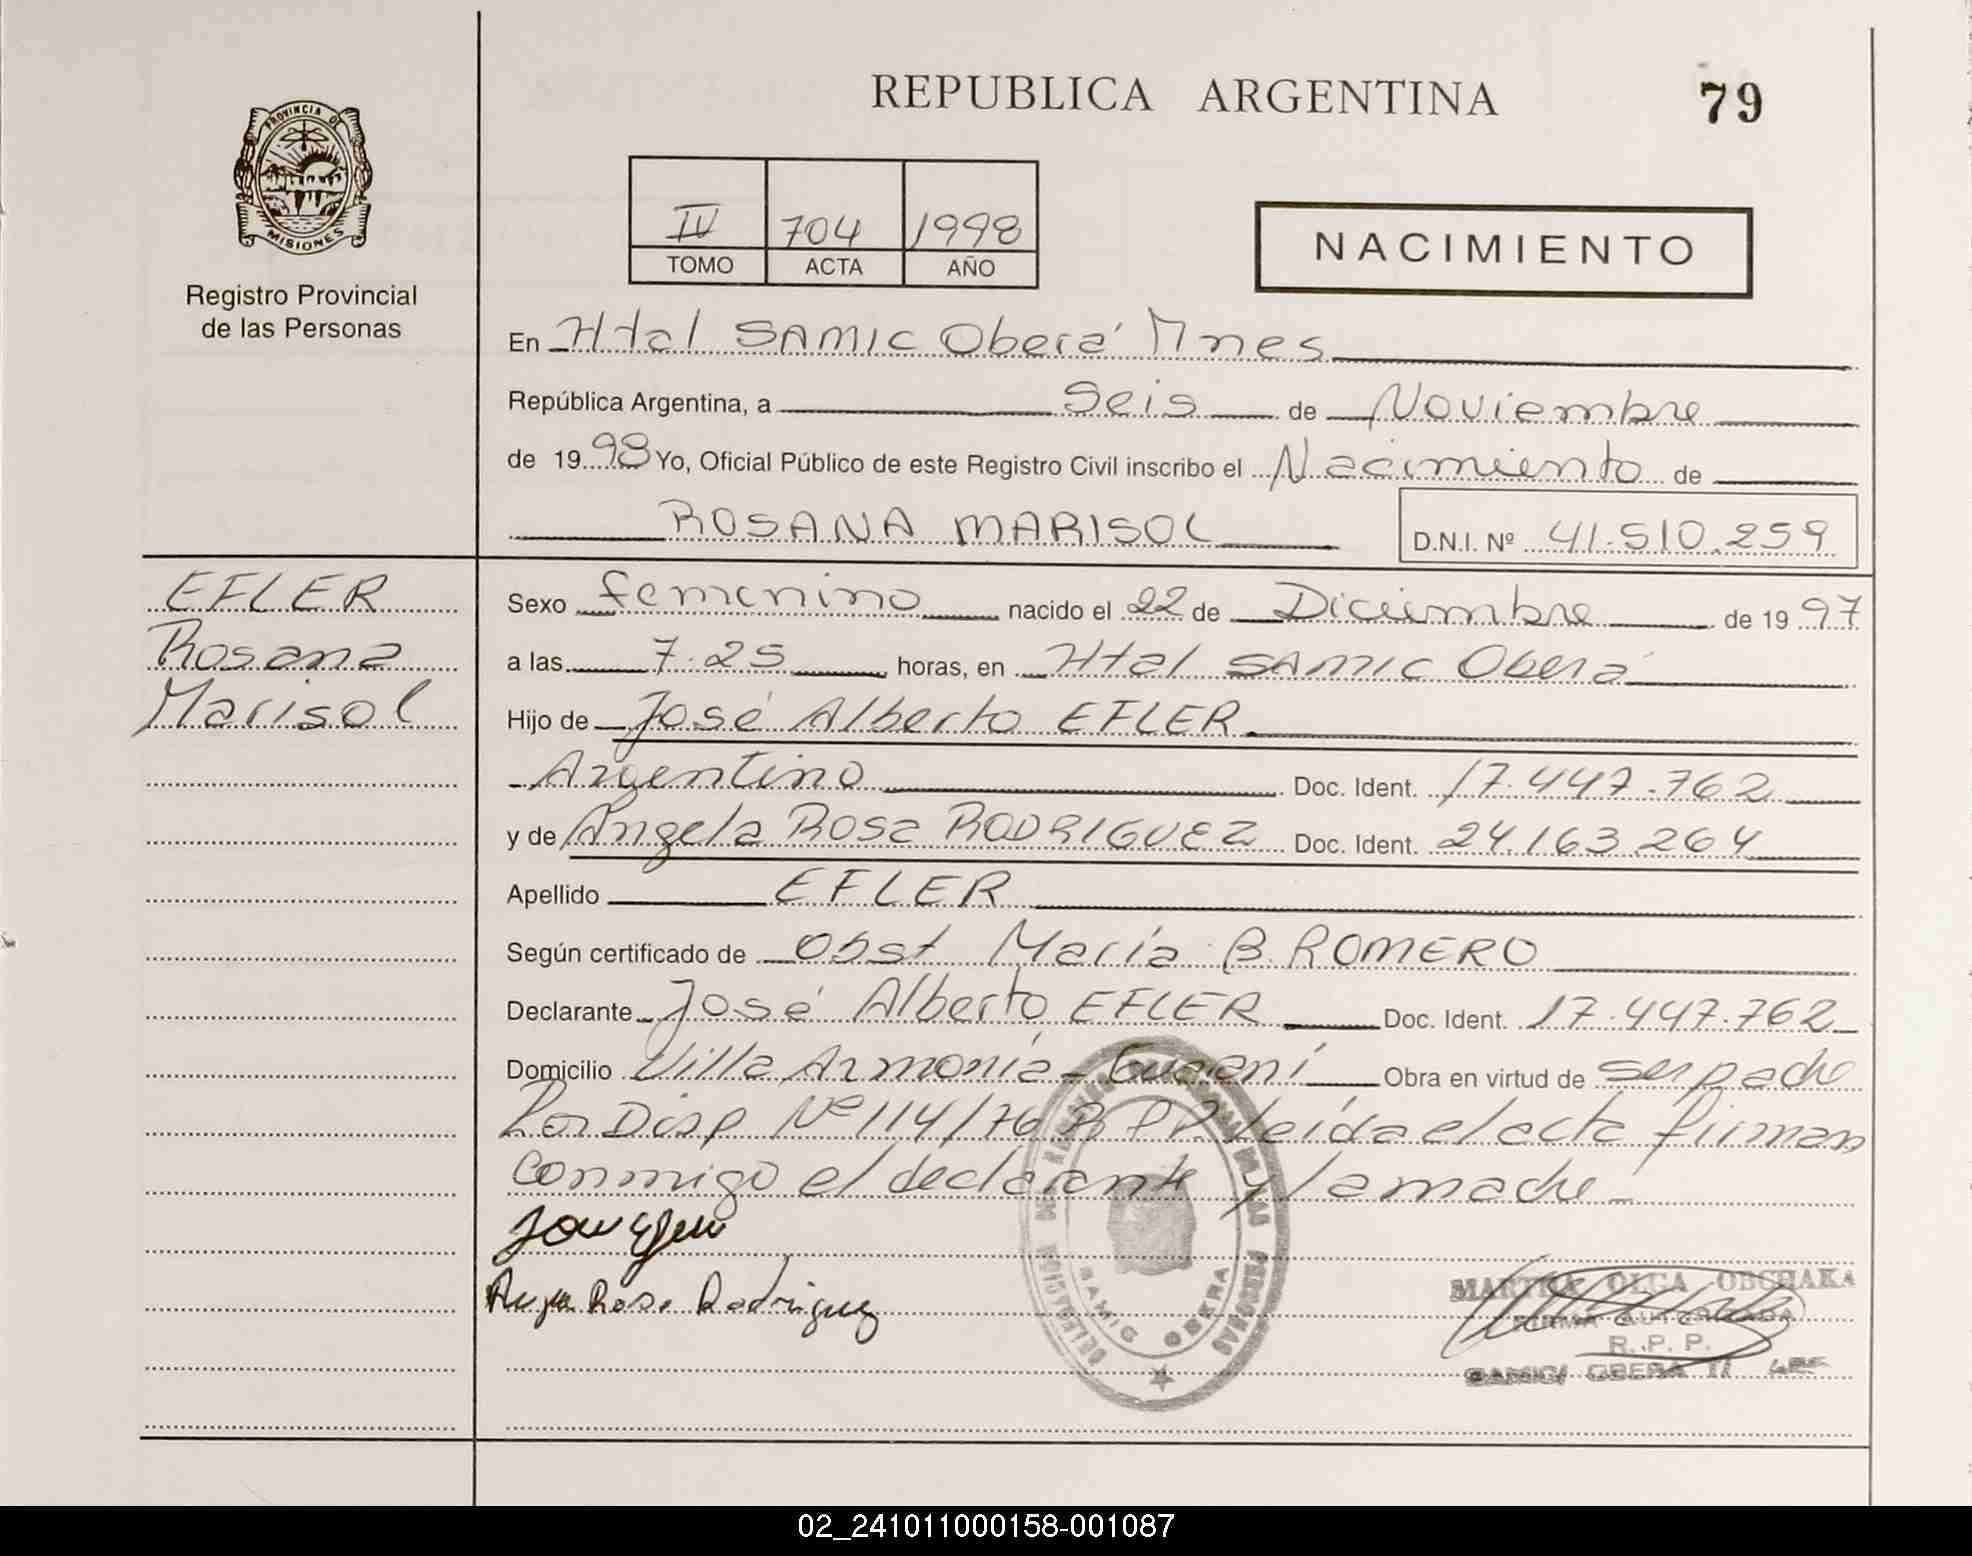 REPUBLICA ARGENTINA
79
PROVINCIA DE
MISIONES
Registro Provincial
de las Personas
IV 704 1998
TOMO ACTA AÑO
NACIMIENTO
En Htal SAMIC Oberá Mnes
República Argentina, a Seis de Noviembre
de 1998 Yo, Oficial Público de este Registro Civil inscribo el Nacimiento de
ROSANA MARISOL D.N.I. Nº 41.510.259
EFLER
Rosana
Marisol
Sexo femenino nacido el 22 de Diciembre de 1997
a las 7.25 horas, en Htal SAMIC Oberá
Hijo de José Alberto EFLER
Argentino Doc. Ident. 17.447.762
y de Angela Rosa RODRIGUEZ Doc. Ident. 24.163.264
Apellido EFLER
Según certificado de Obst María B. ROMERO
Declarante José Alberto EFLER Doc. Ident. 17.447.762
Domicilio Villa Armonía - Guaraní Obra en virtud de ser padre
Por Disp Nº 114/76 R P P. Leída el acta firman
conmigo el declarante y la madre
Rosa Rodriguez
DELEGACION DEL REGISTRO PROVINCIAL DE LAS PERSONAS
SAMIC OBERA
MARTHA OLGA OBCHAKA
FIRMA AUTORIZADA
R.P.P.
SAMIC OBERA
02_241011000158-001087